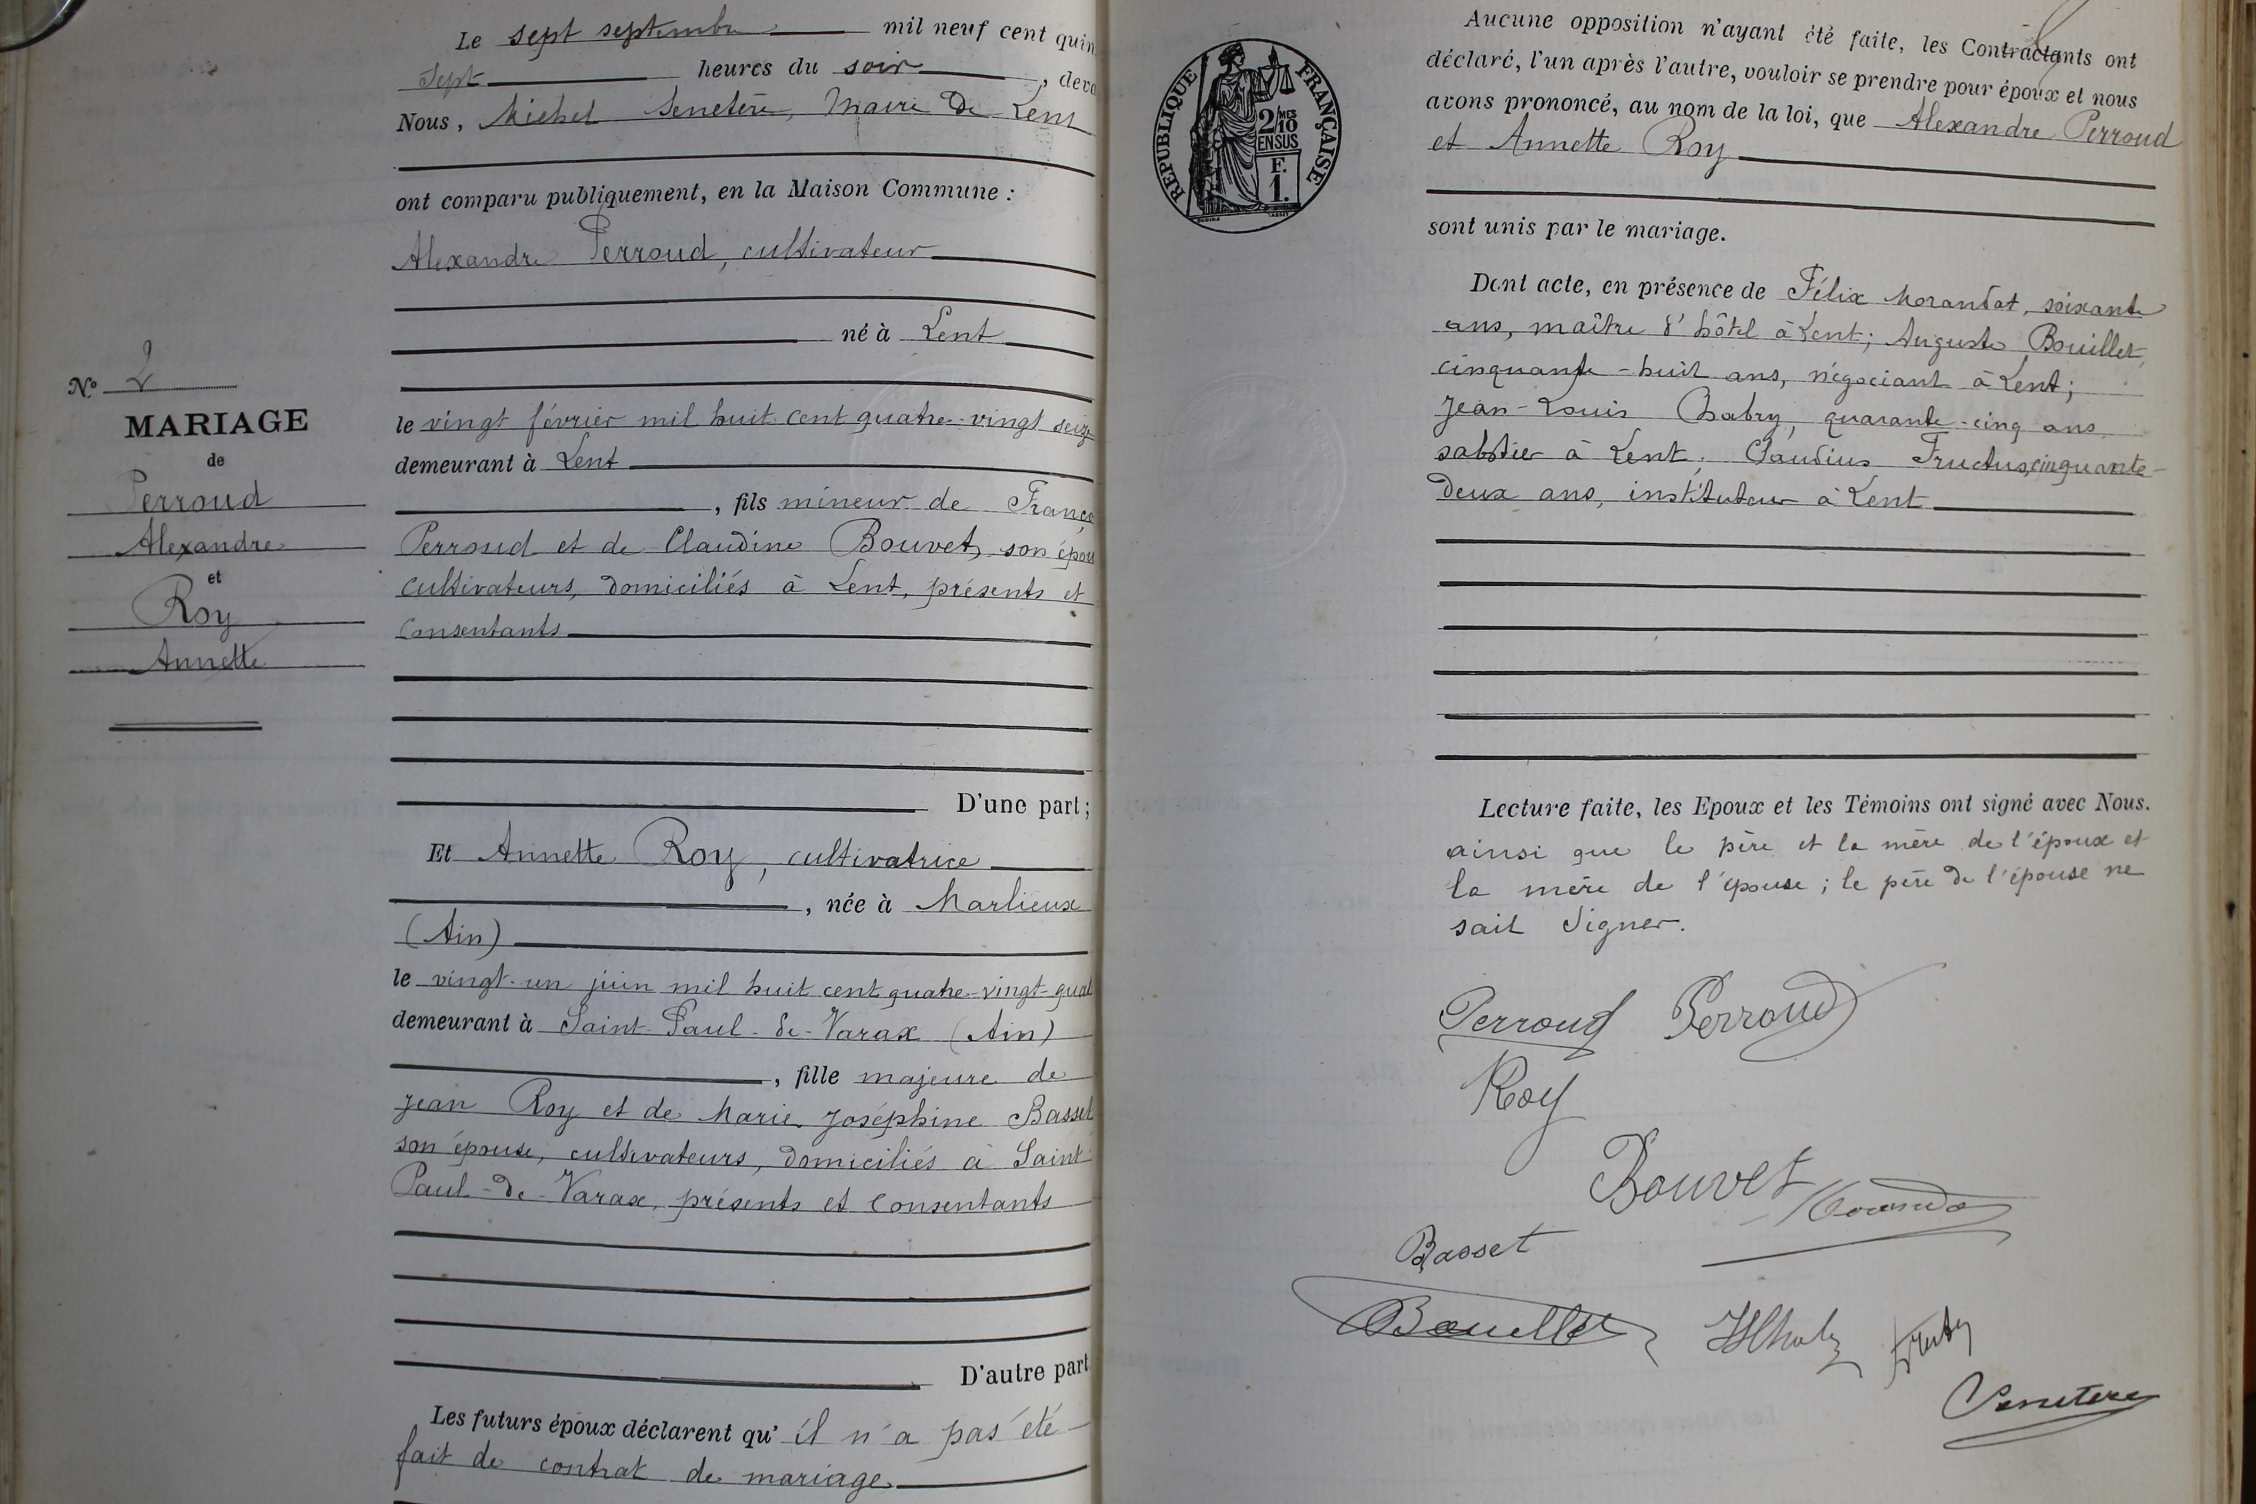 Le sept septembre mil neuf cent quin
sept heures du soir, deva
Nous, Michel Senetère, Maire de Lent
ont comparu publiquement, en la Maison Commune :
Alexandre Perroud, cultivateur
né à Lent
le vingt février mil huit cent quatre-vingt seize
demeurant à Lent
, fils mineur de Franço
Perroud et de Claudine Bouvet, son épou
cultivateurs, domiciliés à Lent, présents et
consentants
D'une part ;
Et Annette Roy, cultivatrice
, née à Marlieux
(Ain)
le vingt-un juin mil huit cent quatre-vingt-quat
demeurant à Saint-Paul-de-Varax (Ain)
, fille majeure de
Jean Roy et de Marie Joséphine Basset
son épouse, cultivateurs, domiciliés à Saint-
Paul-de-Varax, présents et consentants
D'autre part
Les futurs époux déclarent qu'il n'a pas été
fait de contrat de mariage
N° 2
MARIAGE
de
Perroud
Alexandre
et
Roy
Annette
RÉPUBLIQUE FRANÇAISE
2/10 MES
EN SUS
F.
1.
Aucune opposition n'ayant été faite, les Contractants ont
déclaré, l'un après l'autre, vouloir se prendre pour époux et nous
avons prononcé, au nom de la loi, que Alexandre Perroud
et Annette Roy
sont unis par le mariage.
Dont acte, en présence de Félix Morandat, soixante
ans, maître d'hôtel à Lent; Auguste Bouillet,
cinquante-huit ans, négociant à Lent;
Jean-Louis Chabry, quarante-cinq ans
sabotier à Lent; Claudius Fructus, cinquante-
deux ans, instituteur à Lent
Lecture faite, les Epoux et les Témoins ont signé avec Nous.
ainsi que le père et la mère de l'époux et
la mère de l'épouse; le père de l'épouse ne
sait signer.
Perroud Perroud
Roy
Bouvet
Basset
Bouillet
Senetere